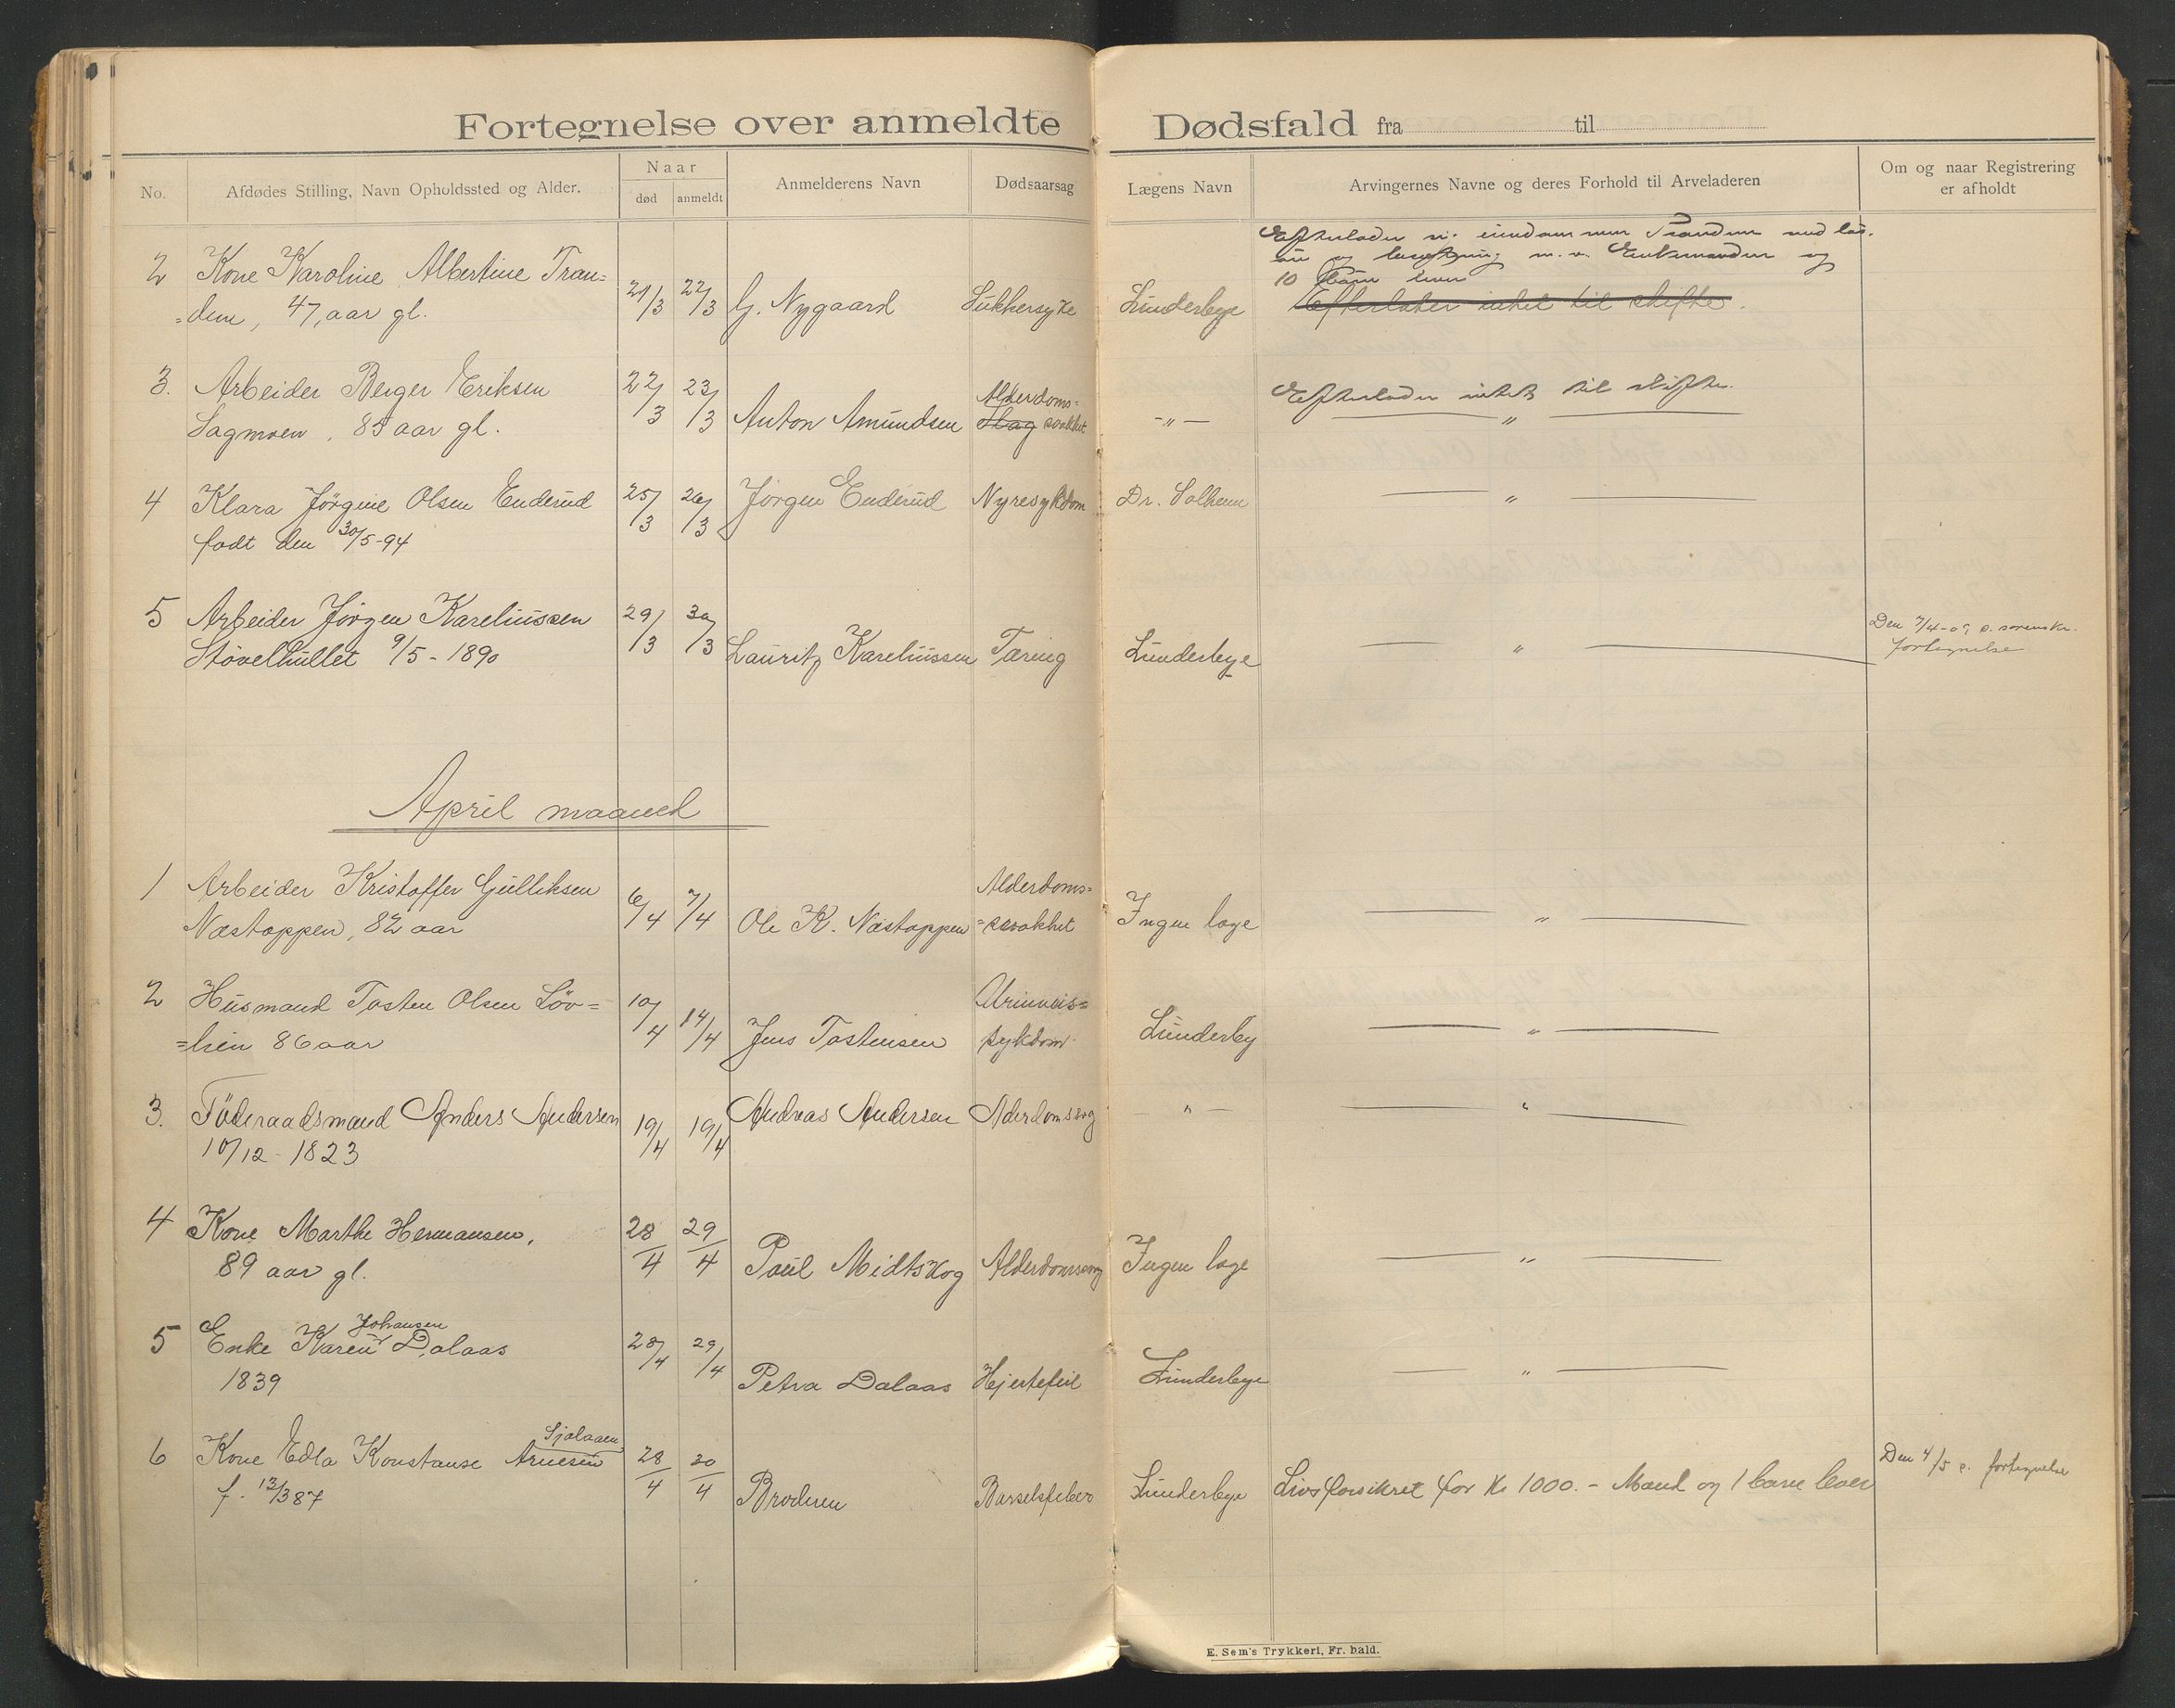 Fortegnelse over anmeldte Dødsfald fra til
No. Afdødes Stilling, Navn Opholdssted og Alder. Naar død anmeldt Anmelderens Navn Dødsaarsag Lægens Navn Arvingernes Navne og deres Forhold til Arveladeren Om og naar Registrering er afholdt
Efterlader sin eiendom Trandem med
og m.v. Enkemanden og
10 barn
2 Kone Karoline Albertine Tran=
=dem, 47, aar gl. 21/3 22/3 G. Nygaard Sukkersyke Lunderbye Efterlater intet til skifte.
3. Arbeider Berger Eriksen 22/3 23/3 Alderdoms= Efterlader intet til skifte.
Sagmoen, 85 aar gl. Anton Amundsen Slag svakhet -"- — " —
4 Klara Jörgine Olsen Enderud 25/3 26/3 Jörgen Enderud Nyresykdom Dr. Solheim — " —
født den 30/5-94
5 Arbeider Jörgen Kareliussen 29/3 30/3 Den 7/4-09 s. sorenskr.
Støvelhullet 9/5-1890 Lauritz Kareliussen Tæring Lunderbye — " — fortegnelse
April maaned
1 Arbeider Kristoffer Gulliksen 6/4 7/4 Alderdoms=
Næstoppen, 82 aar Ole K. Næstoppen =svakhet Ingen læge — " —
2 Husmand Tosten Olsen Löv= 10/4 14/4 Urinveis=
=lien 86 aar Jens Tostensen sykdom Lunderby — " —
3. Föderaadsmand Anders Andersen 19/4 19/4 Andreas Andersen Alderdomssvag " — — " —
10/12-1823
4 Kone Marthe Hermansen, 28/4 29/4
89 aar gl. Paul Midtskog Alderdomssvag Ingen læge — " —
Johansen
5 Enke Karen Dalaas 28/4 29/4
1839 Petra Dalaas Hjertefeil Lunderbye — " —
Sjølaaen
6 Kone Edla Konstanse Arnesen 28/4 30/4 Den 4/5 s. fortegnelse
f. 13/3 87 Broderen Barselsfeber Lunderbye Livsforsikret for Kr 1000.- Mand og 1 barn lever
E. Sem's Trykkeri, Fr. hald.